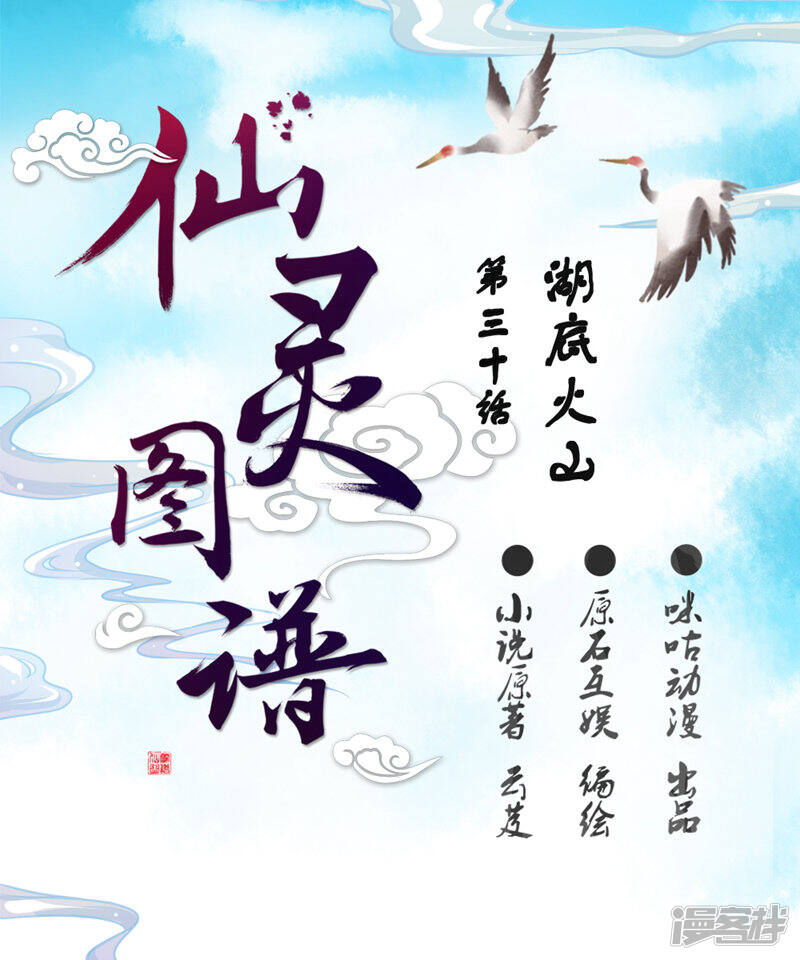 仙灵图谱
湖底火山
第三十话
咪咕动漫 出品
原石互娱 编绘
小说原著 云芨
漫客栈